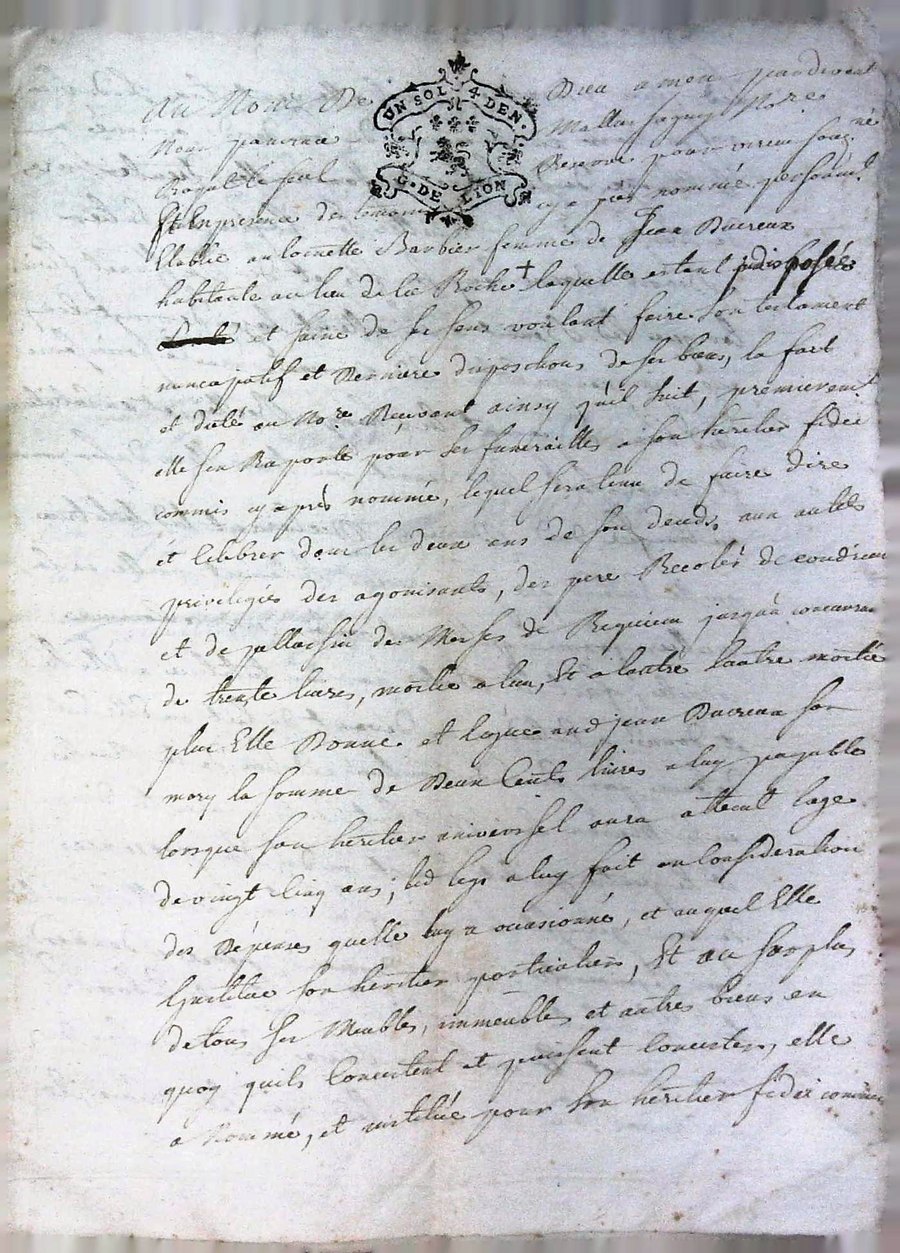 UN SOL 4 DEN.
G. DE LION
Au Nom De Dieu amen pardevant
Nous No.re
Royal Reservé pour vreu soug.né
Et En presence des temoins cy a prés nommés personn.t
Etablie antoinette Barbier femme de Jean Ducreux
habitante au lieu de la Roche + laquelle estant indisposée
et saine de ses sens voulant faire son testament
nuncupatif et Derniere disposition de ses biens, la fait
et dicté au No.re Recevant ainsy qu'il suit, premierem.t
elle sen Raporte pour ses funerailles a son heritier fidei
commis cy aprés nommé, lequel sera tenu de faire dire
et celebrer dans les deux ans de son deceds, aux autels
privilegiés des agonisants, des pere Recolés de condrieu
et de pellussin des Messes de Requiem jusqu'a concurran
de trente livres, moitié a lun, Et a lautre lautre moitié
plus Elle Donne et legue aud jean Ducreux son
mary la somme de Deux Cents livres a luy payable
lorsque son heritier universel aura atteint lage
de vingt Cinq ans; led legs a luy fait en Consideration
des Dépenses quelle luy a occasionné, et auquel Elle
Institue son heritier particulier, Et au surplus
de tous ses Meubles, immeubles et autres biens en
quoy quils Consistent et puissent Consister, elle
a Nommé, et institué pour son heritier fidei commi